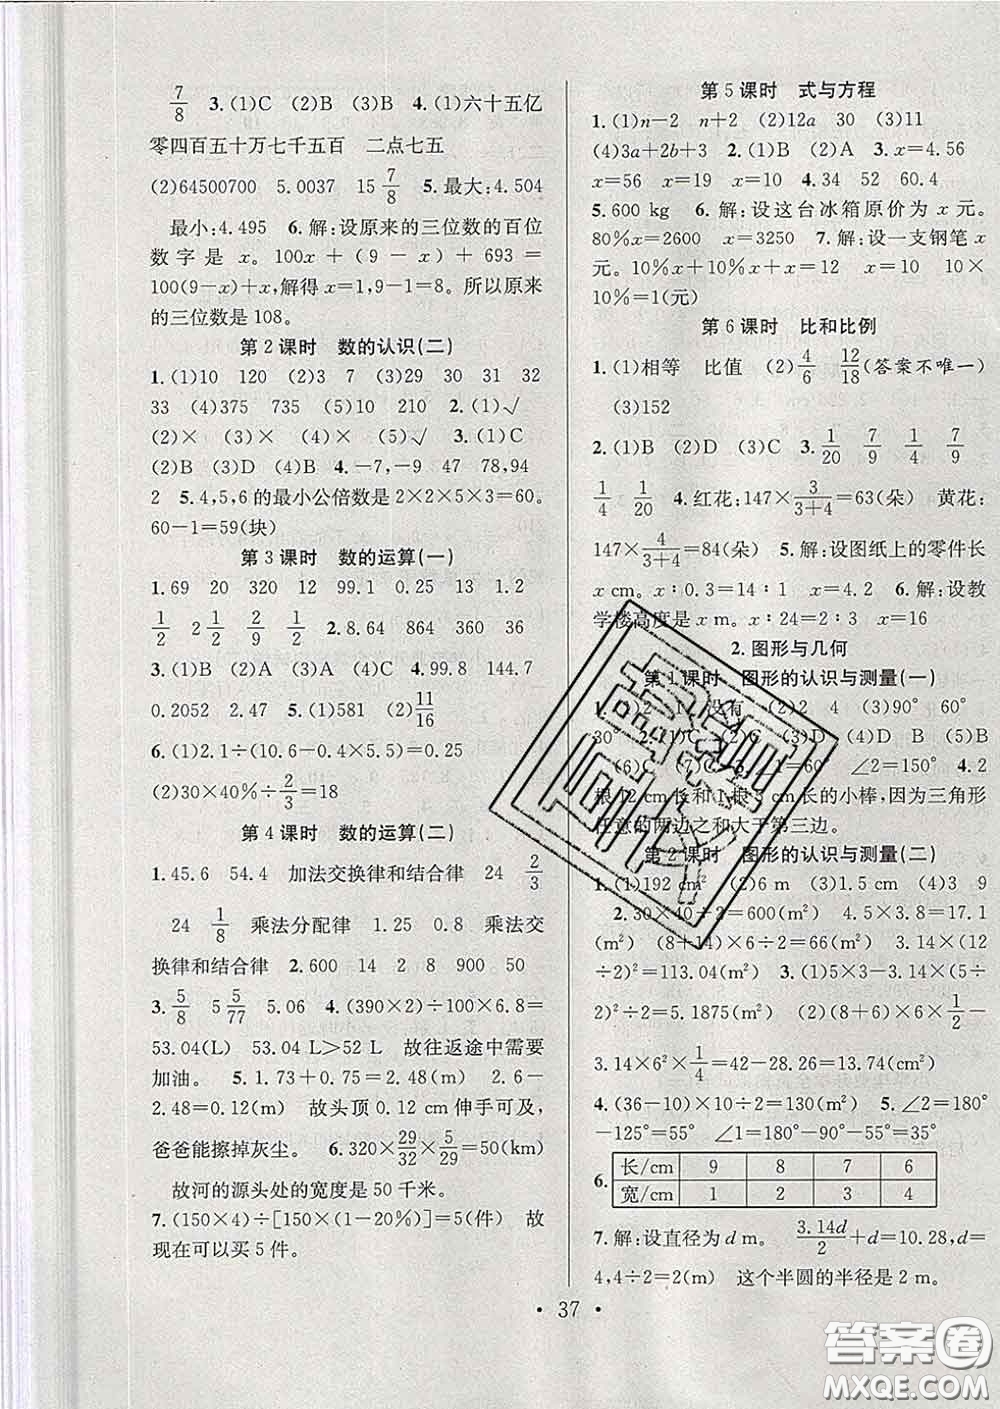 7/8  3.(1)C  (2)B  (3)B  4.(1)六十五亿
零四百五十万七千五百  二点七五
(2)64500700  5.0037  15 7/8  5.最大:4.504
最小:4.495  6.解:设原来的三位数的百位
数字是 x。100x+(9-x)+693=
100(9-x)+x,解得 x=1,9-1=8。所以原来
的三位数是 108。
第 2 课时  数的认识(二)
1.(1)10  120  (2)3  7  (3)29  30  31  32
33  (4)375  735  (5)10  210  2.(1)√
(2)×  (3)×  (4)×  (5)√  3.(1)C
(2)B  (3)D  (4)B  4.-7,-9  47  78,94
2  5.4,5,6 的最小公倍数是 2×2×5×3=60。
60-1=59(块)
第 3 课时  数的运算(一)
1.69  20  320  12  99.1  0.25  13  1.2
1/2  2 1/2  2/9  1/2  2.8.64  864  360  36
3.(1)B  (2)A  (3)A  4.99.8  144.7
0.2052  2.47  5.(1)581  (2)11/16
6.(1)2.1÷(10.6-0.4×5.5)=0.25
(2)30×40%÷2/3=18
第 4 课时  数的运算(二)
1.45.6  54.4  加法交换律和结合律  24  2/3
24  1/8  乘法分配律  1.25  0.8  乘法交
换律和结合律  2.600  14  2  8  900  50
3.5/8  5 5/77  5.06  4.(390×2)÷100×6.8=
53.04(L)  53.04 L>52 L  故往返途中需要
加油。  5.1.73+0.75=2.48(m)  2.6-
2.48=0.12(m)  故头顶 0.12 cm 伸手可及,
爸爸能擦掉灰尘。  6.320×29/32×5/29=50(km)
故河的源头处的宽度是 50 千米。
7.(150×4)÷[150×(1-20%)]=5(件)  故
现在可以买 5 件。
第 5 课时  式与方程
1.(1)n-2  n+2  (2)12a  30  (3)11
(4)3a+2b+3  2.(1)B  (2)A  3.x=4.56
x=56  x=19  x=10  4.34  52  60.4
5.600 kg  6.解:设这台冰箱原价为 x 元。
80%x=2600  x=3250  7.解:设一支钢笔 x
元。10%x+10%x+x=12  x=10  10×
10%=1(元)
第 6 课时  比和比例
1.(1)相等  比值  (2)4/6  12/18(答案不唯一)
(3)152
2.(1)B  (2)D  (3)C  3.1/20  7/9  1/4  7/9
1/4  1/20  4.红花:147×3/(3+4)=63(朵)  黄花:
147×4/(3+4)=84(朵)  5.解:设图纸上的零件长
x cm。x∶0.3=14∶1  x=4.2  6.解:设教
学楼高度是 x m。x∶24=2∶3  x=16
2.图形与几何
第 1 课时  图形的认识与测量(一)
1.(1)2  1  没有  (2)2  4  (3)90°  60°
30°  2.(1)C  (2)C  (3)D  (4)D  B  (5)B
(6)C  (7)C  3.∠1=60°  ∠2=150°  4.2
根 12 cm 长和 1 根 3 cm 长的小棒，因为三角形
任意的两边之和大于第三边。
第 2 课时  图形的认识与测量(二)
1.(1)192 cm²  (2)6 m  (3)1.5 cm  (4)3  9
2.30×40÷2=600(m²)  4.5×3.8=17.1
(m²)  (8+14)×6÷2=66(m²)  3.14×(12
÷2)²=113.04(m²)  3.(1)5×3-3.14×(5÷
2)²÷2=5.1875(m²)  (2)(8+6)×6×1/2-
3.14×6²×1/4=42-28.26=13.74(cm²)
4.(36-10)×10÷2=130(m²)  5.∠2=180°
-125°=55°  ∠1=180°-90°-55°=35°
6. 长/cm  9  8  7  6
宽/cm  1  2  3  4
7.解:设直径为 d m。  3.14d/2+d=10.28,d=
4,4÷2=2(m)  这个半圆的半径是 2 m。
· 37 ·
答案圈
MXQE.COM